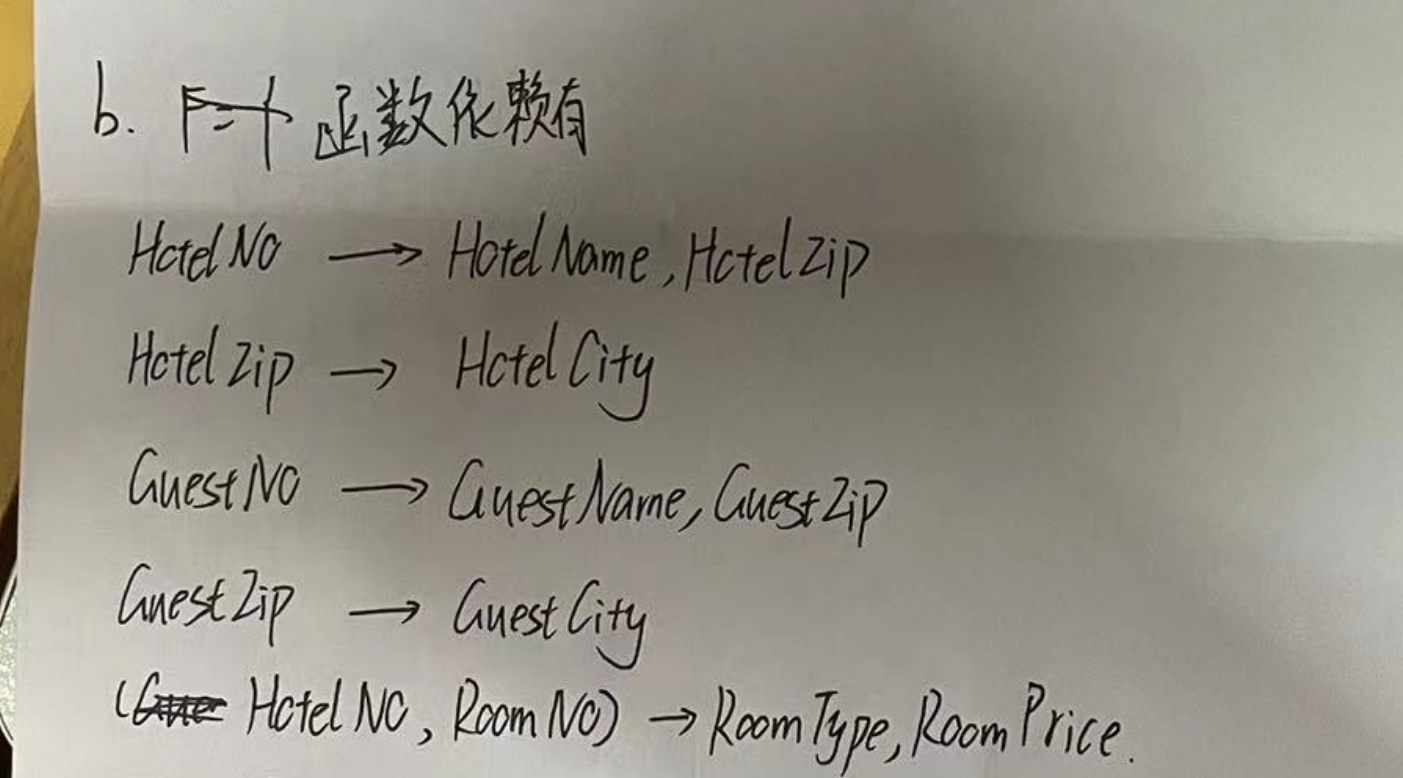 b. 函数依赖有
HotelNO → HotelName, HotelZip
HotelZip → HotelCity
GuestNO → GuestName, GuestZip
GuestZip → GuestCity
(HotelNO, RoomNO) → RoomType, RoomPrice.